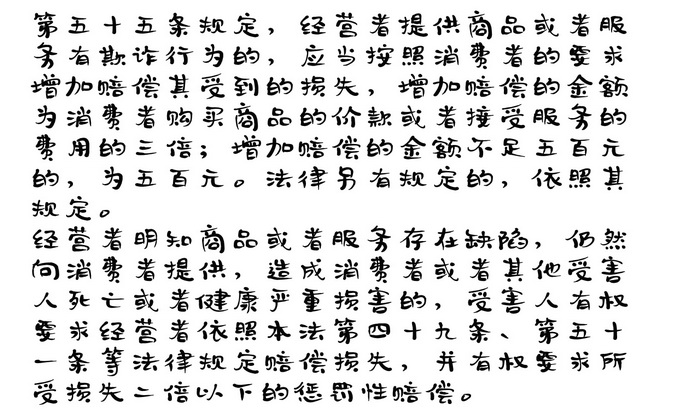 第五十五条规定，经营者提供商品或者服
务有欺诈行为的，应当按照消费者的要求
增加赔偿其受到的损失，增加赔偿的金额
为消费者购买商品的价款或者接受服务的
费用的三倍；增加赔偿的金额不足五百元
的，为五百元。法律另有规定的，依照其
规定。
经营者明知商品或者服务存在缺陷，仍然
向消费者提供，造成消费者或者其他受害
人死亡或者健康严重损害的，受害人有权
要求经营者依照本法第四十九条、第五十
一条等法律规定赔偿损失，并有权要求所
受损失二倍以下的惩罚性赔偿。